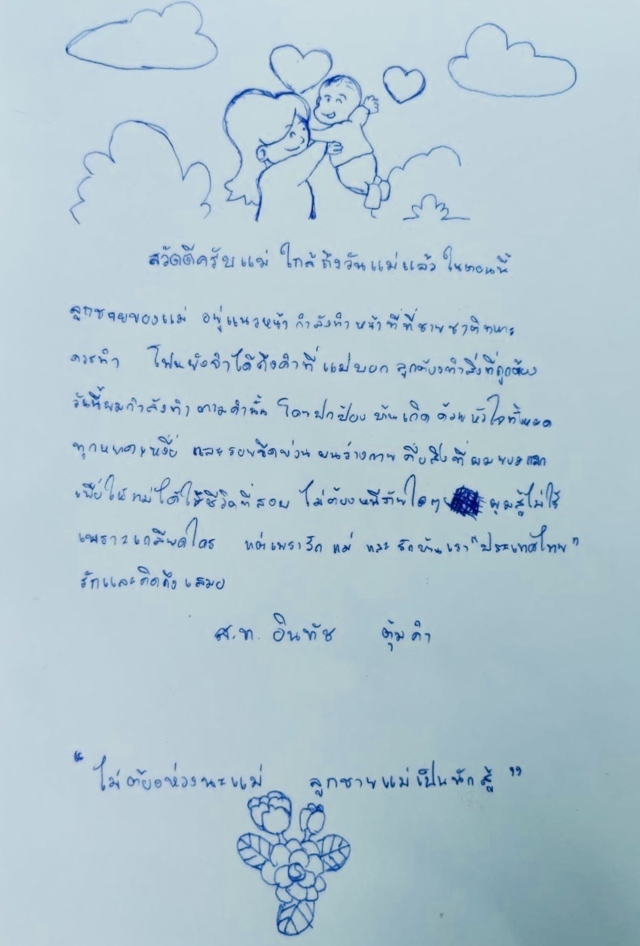 สวัดดีครับแม่ ใกล้ถึงวันแม่แล้ว ในตอนนี้
ลูกชายของแม่ อยู่แนวหน้า กำลังทำหน้าที่ที่ชายชาติทหาร
ควรทำ โฟนยังจำได้ถึงคำที่แม่บอก ลูกต้องทำสิ่งที่ถูกต้อง
วันนี้ผมกำลังทำตามคำนั้น โดยปกป้องบ้านเกิดด้วยหัวใจทั้งหมด
ทุกหยาดเหงื่อ และรอยขีดข่วนบนร่างกาย คือสิ่งที่ผมยอมแลก
เพื่อให้แม่ได้ใช้ชีวิตที่สงบ ไม่ต้องหนีภัยใดๆ ผมสู้ไม่ใช้
เพราะเกลียดใคร แต่เพราะรักแม่ และรักบ้านเรา "ประเทศไทย"
รักและคิดถึงเสมอ
ส.ท. อินทัช ตุ้มคำ
"ไม่ต้องห่วงนะแม่ ลูกชายแม่เป็นนักสู้"